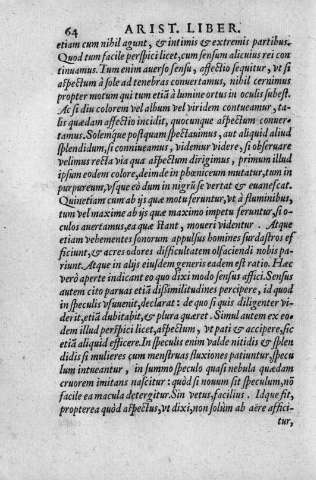 64 ARIST. LIBER.
etiam cum nihil agunt, & intimis & extremis partibus.
Quod tum facile perspici licet, cum sensum alicuius rei con
tinuamus. Tum enim auerso sensu, affectio sequitur, vt si
aspectum à sole ad tenebras conuertamus, nihil cernimus
propter motum qui tum etiã à lumine ortus in oculis subest.
Ac si diu colorem vel album vel viridem contueamur, ta-
lis quædam affectio incidit, quocunque aspectum conuer-
tamus. Solemque postquam spectauimus, aut aliquid aliud
splendidum, si conniueamus, videmur videre, si obseruare
velimus recta via qua aspectum dirigimus, primum illud
ipsum eodem colore, deinde in phœniceum mutatur, tum in
purpureum, vsque eo dum in nigrũ se vertat & euanescat.
Quinetiam cum ab ijs quæ motu feruntur, vt à fluminibus,
tum vel maxime ab ijs quæ maximo impetu feruntur, si o-
culos auertamus, ea quæ stant, moueri videntur. Atque
etiam vehementes sonorum appulsus homines surdastros ef
ficiunt, & acres odores difficultatem olfaciendi nobis pa-
riunt. Atque in alijs eiusdem generis eadem est ratio. Hæc
verò aperte indicant eo quo dixi modo sensus affici. Sensus
autem cito paruas etiã dissimilitudines percipere, id quod
in speculis vsuuenit, declarat: de quo si quis diligenter vi-
derit, etiã dubitabit, & plura quæret. Simul autem ex eo-
dem illud perspici licet, aspectum, vt pati & accipere, sic
etiã aliquid efficere. In speculis enim valde nitidis & splen
didis si mulieres cum menstruas fluxiones patiuntur, specu
lum intueantur, in summo speculo quasi nebula quædam
cruorem imitans nascitur: quòd si nouum sit speculum, nõ
facile ea macula detergitur. Sin vetus, facilius. Idque fit,
propterea quòd aspectus, vt dixi, non solùm ab aëre affici-
tur,